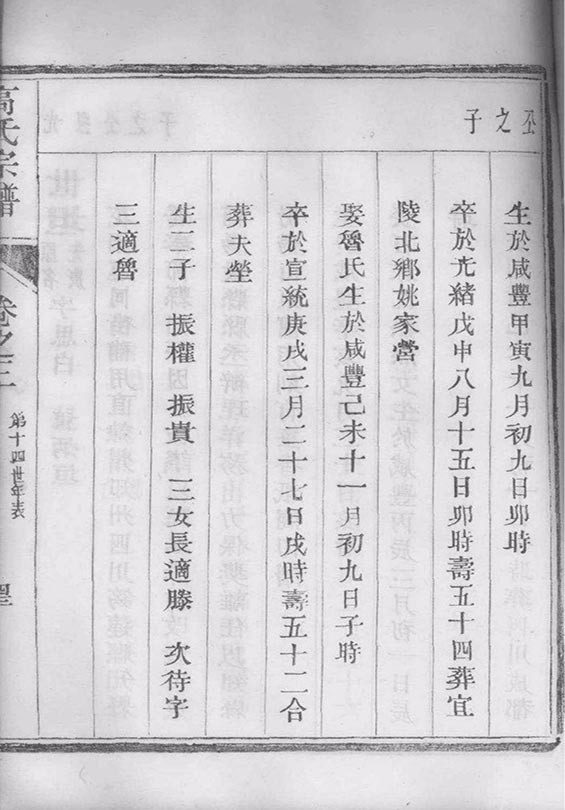 公之子
生於咸豐甲寅九月初九日卯時
卒於光緒戊申八月十五日卯時壽五十四葬宜
陵北鄉姚家營
娶魯氏生於咸豐己未十一月初九日子時
卒於宣統庚戌三月二十七日戌時壽五十二合
葬夫塋
生二子 振權 振貴 三女長適滕 次待字
三適魯
高氏宗譜 卷之三 第十四世年表